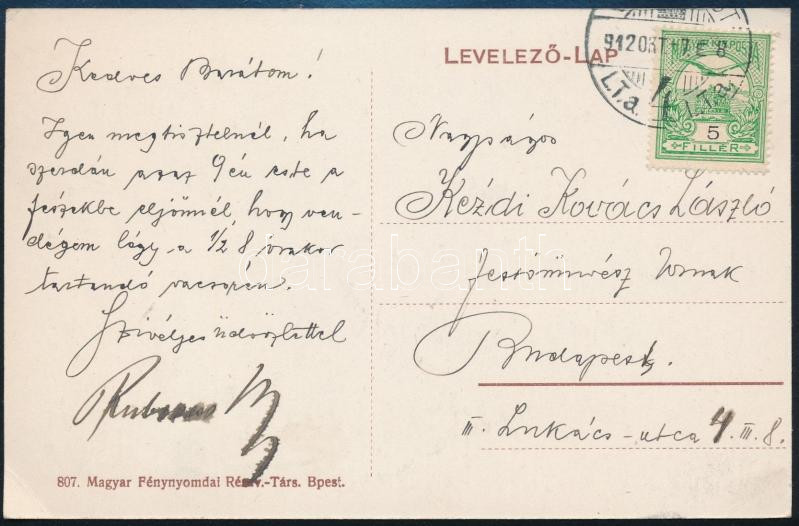 Kedves Barátom!
Igen megtisztelnél, ha
szerdán azaz 9én este a
fészekbe eljönnél, hogy ven-
dégem légy a 1/2 8 órakor
tartandó vacsorán.
Szivélyes üdvözlettel
807. Magyar Fénynyomdai Részv.-Társ. Bpest.
LEVELEZŐ-LAP
912 OKT
I.T.a.
MAGYAR KIR. POSTA
5
FILLÉR
Nagyságos
Kézdi Kovács László
festőművész Urnak
Budapest.
III. Lukács-utca 4. III. 8.
darabanth